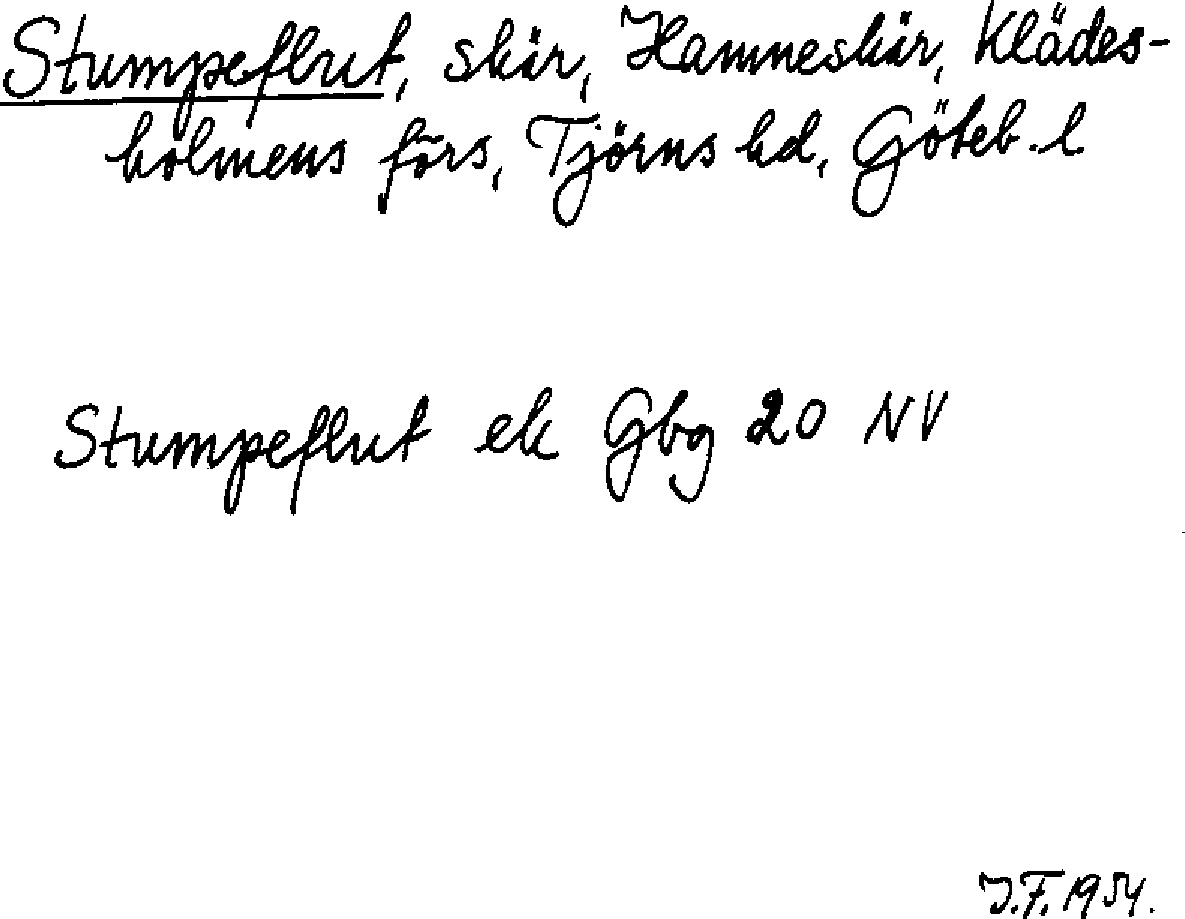 Stumpeflut, skär, Hamneskär, Klädes-
holmens förs, Tjörns hd, Göteb. l
Stumpeflut ek Gbg 20 NV
J.F. 1954.